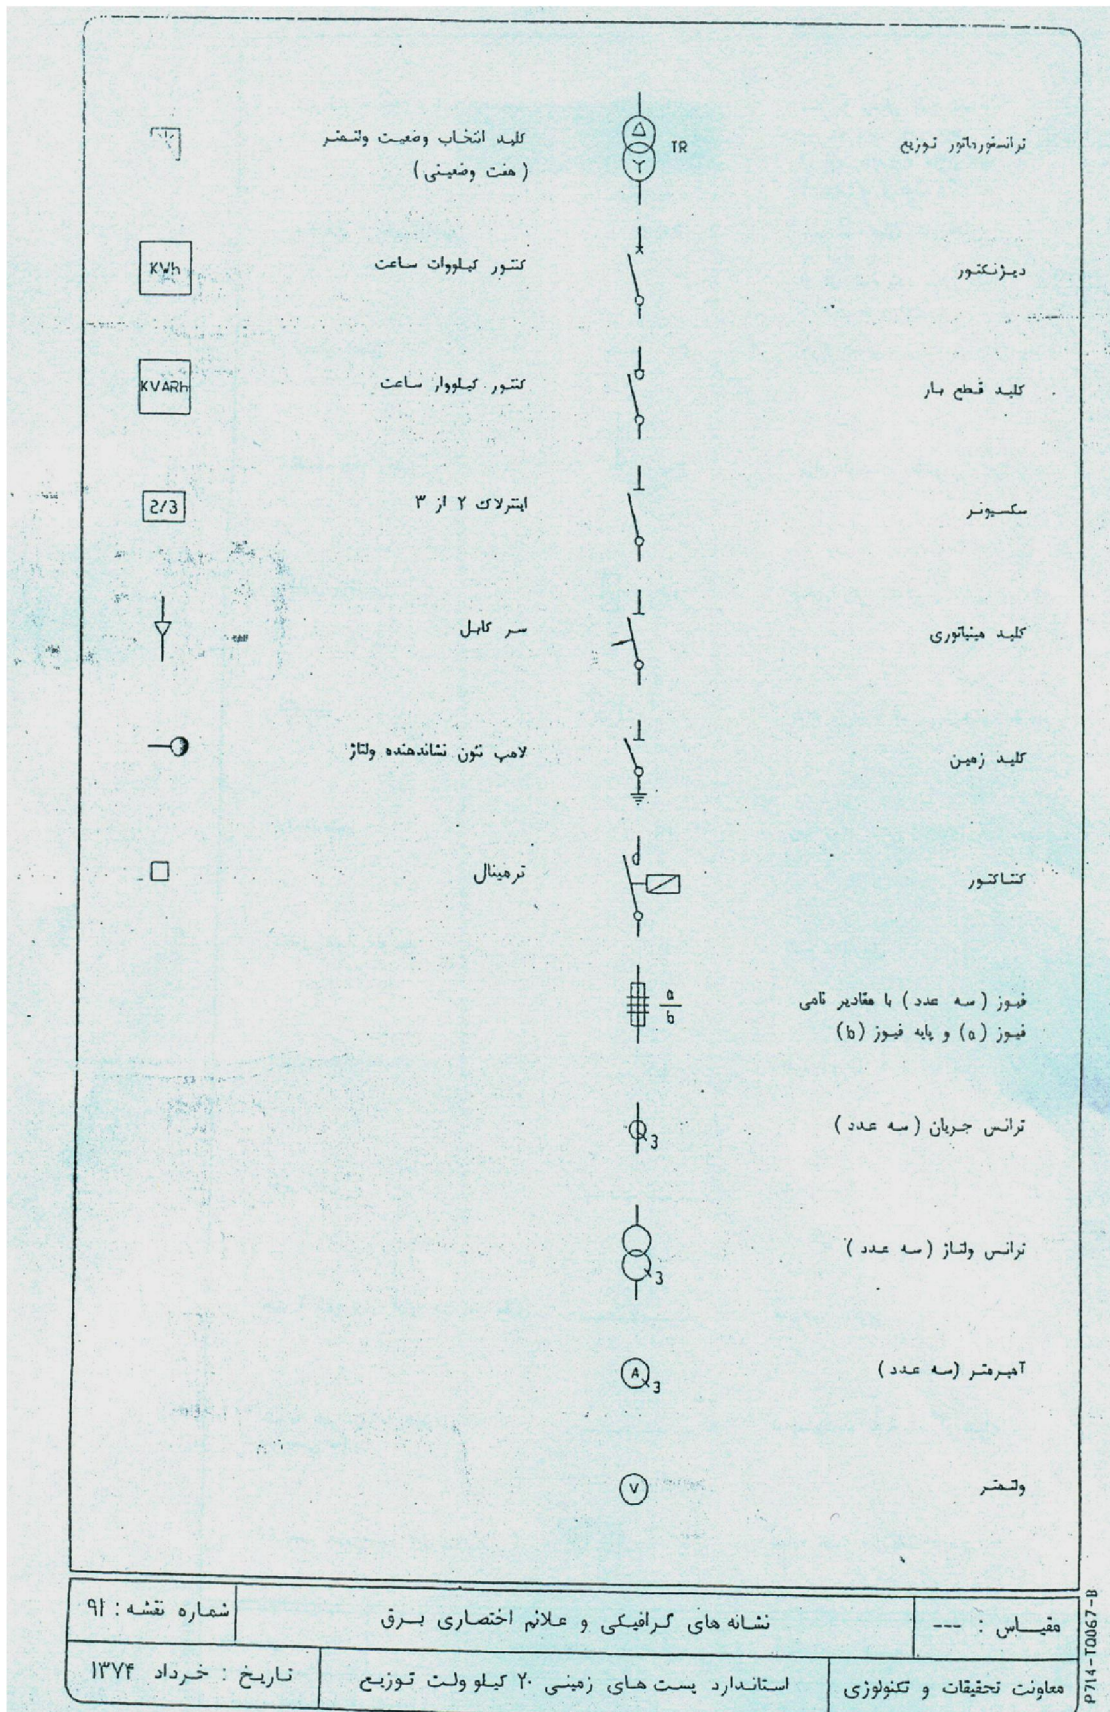 ترانسفورماتور توزیع
TR
دیژنکتور
کلید قطع بار
سکسیونر
کلید مینیاتوری
کلید زمین
کنتاکتور
فیوز ( سه عدد ) با مقادیر نامی
فیوز (a) و پایه فیوز (b)
a
b
ترانس جریان ( سه عدد )
3
ترانس ولتاژ ( سه عدد )
3
آمپرمتر (سه عدد )
A
3
ولتمتر
V
کلید انتخاب وضعیت ولتمتر
( هفت وضعیتی )
کنتور کیلووات ساعت
KWh
کنتور کیلووار ساعت
KVARh
اینترلاک ۲ از ۳
2/3
سر کابل
لامپ نئون نشاندهنده ولتاژ
ترمینال
مقیاس : ---
نشانه های گرافیکی و علائم اختصاری برق
شماره نقشه : ۹۱
معاونت تحقیقات و تکنولوژی
استاندارد پست های زمینی ۲۰ کیلو ولت توزیع
تاریخ : خرداد ۱۳۷۴
P714-T0067-B